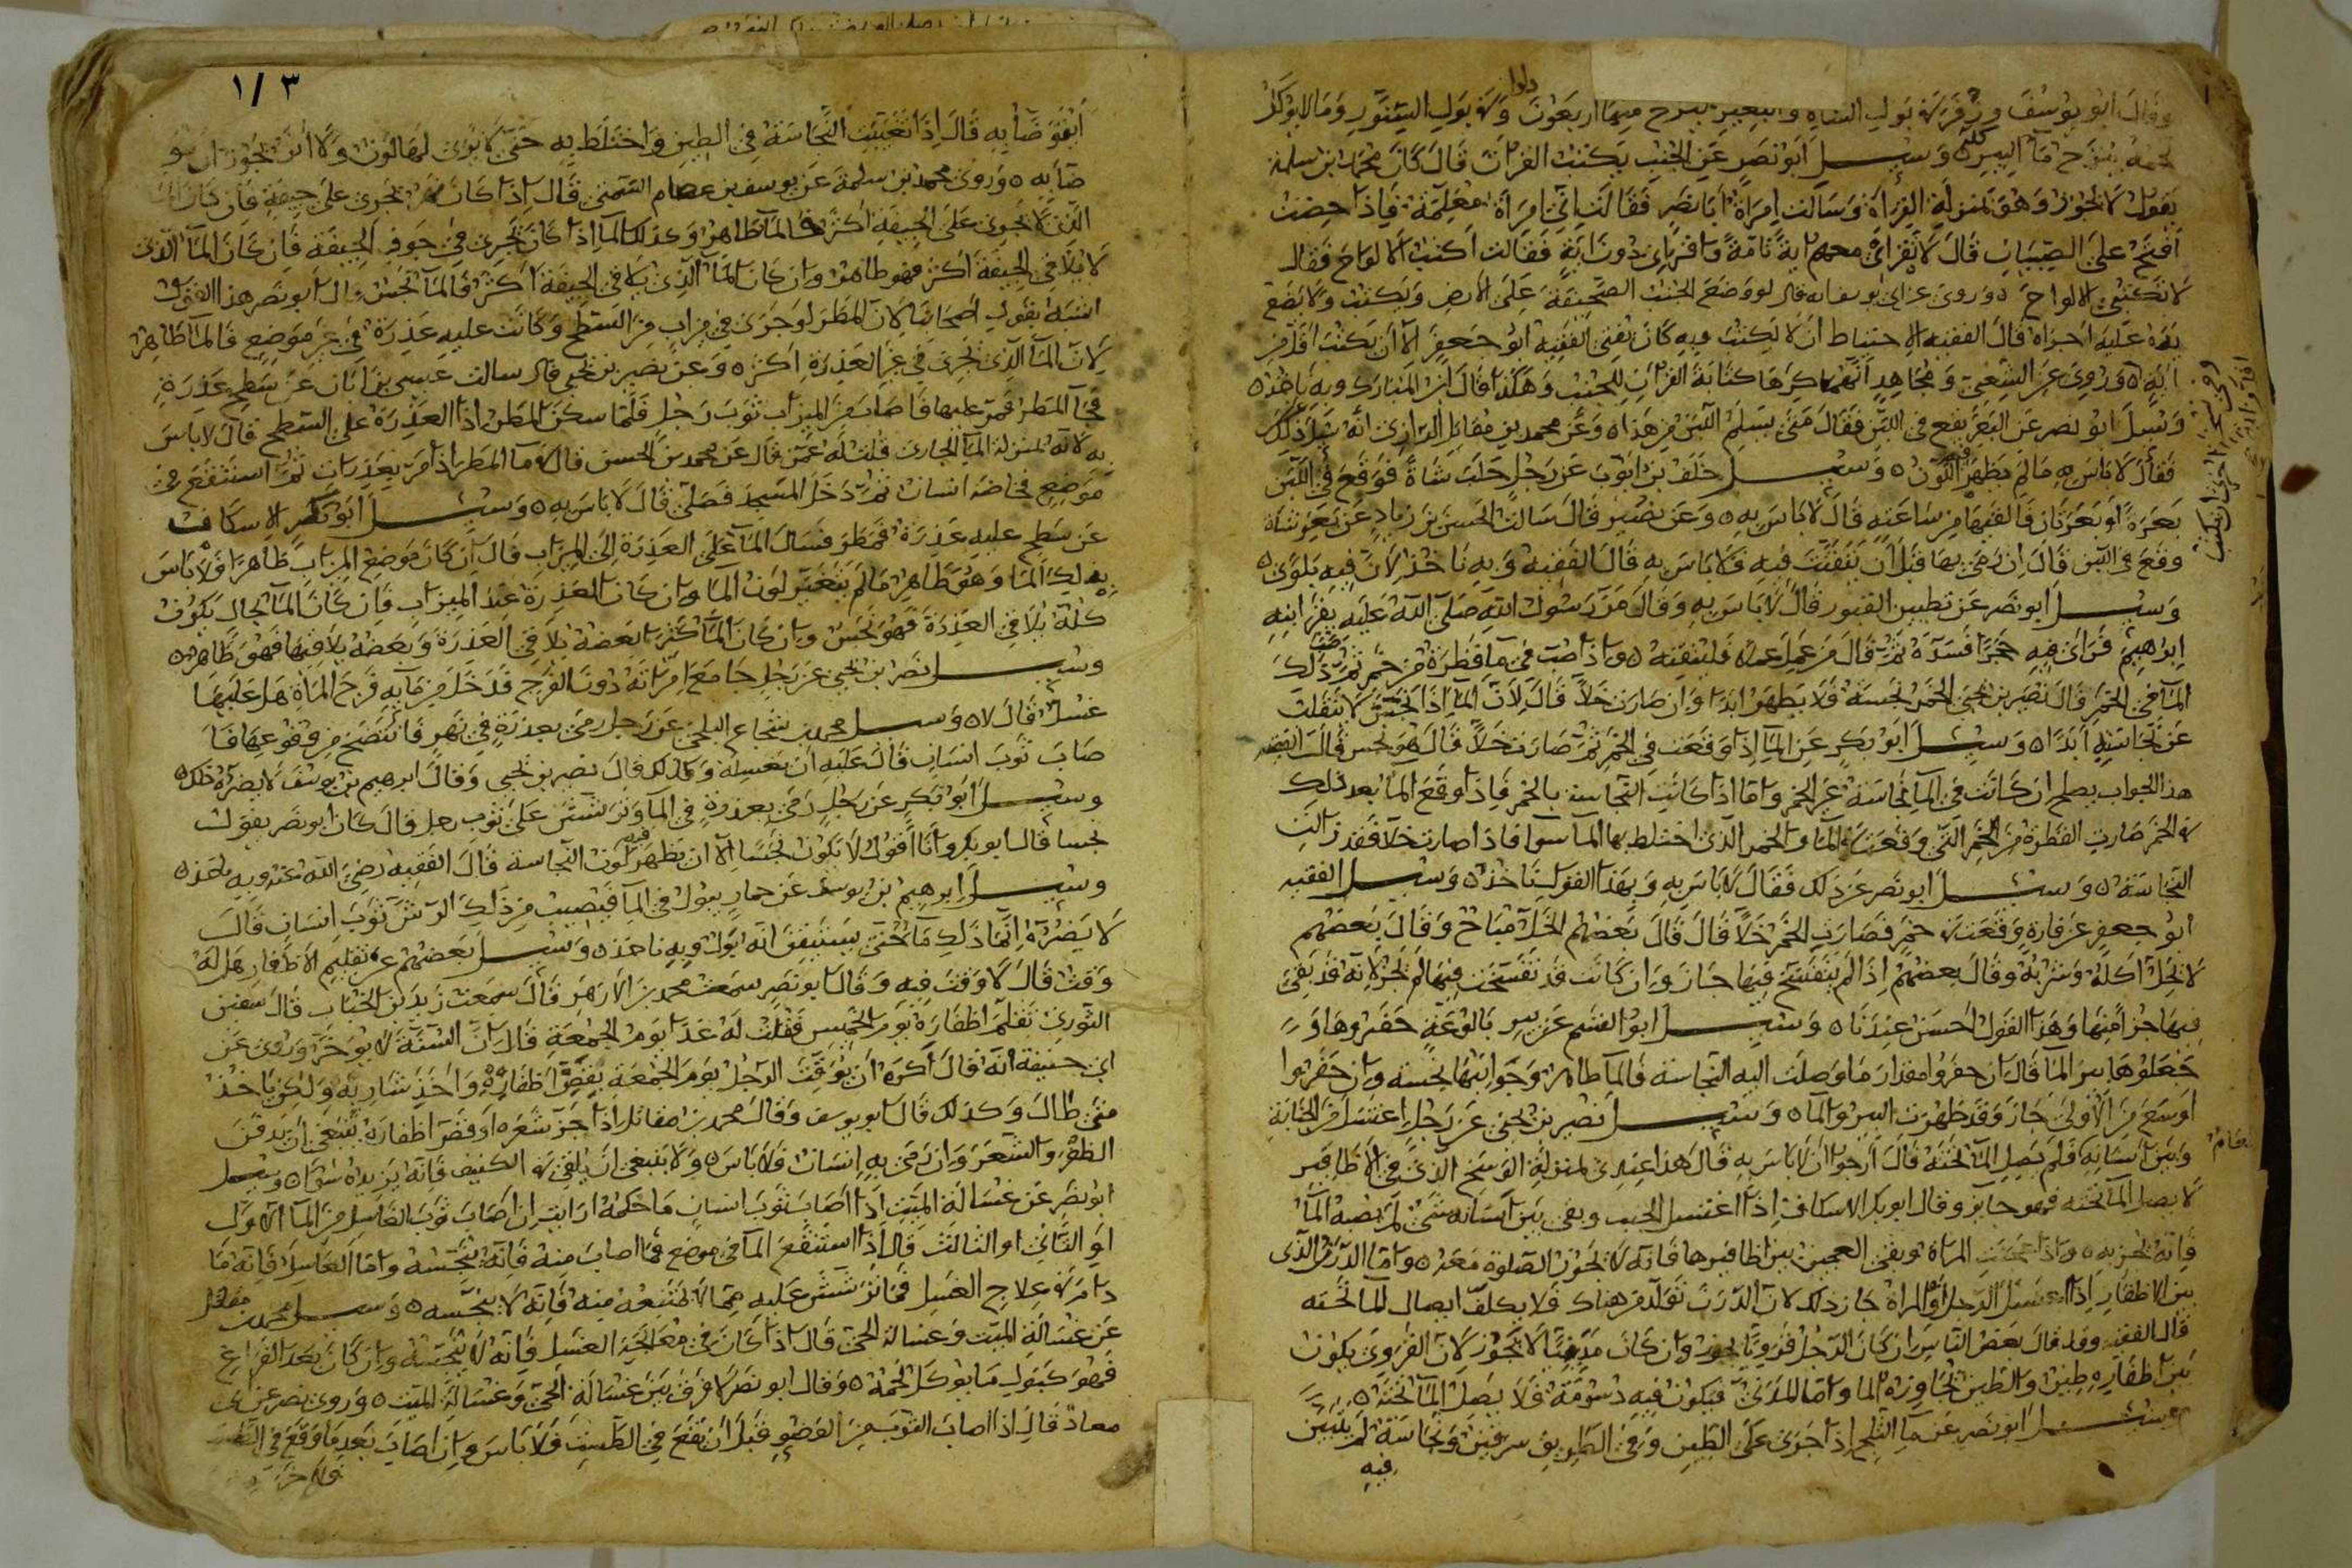 وقال ابو يوسف وزفر في بول الشاة والبعير ينزح منها اربعون دلوا وفي بول السنور وما لا يوكل
لحمه ينزح مآ البير كله وسيل ابو نصر عن الجنب يكتب القران قال كان محمد بن سلمة
يقول لا يجوز وهو بمنزلة القراة وسالت امراة ابا نصر فقالت اني امراة معلمة فاذا حضت
افتح على الصبيان قال لا تقرائ معهم اية تامة واقراي دون اية فقالت اكتب الالواح فقال
لا تكتبي الالواح وروى عن ابي يوسف انه قال لو وضع الجنب الصحيفة على الارض ويكتب ولا يضع
يده عليه اجزاه قال الفقيه الاحتياط ان لا يكتب وبه كان يفتي الفقيه ابو جعفر الا ان يكتب اقل من
اية وروي عن الشعبي ومجاهد انهما كرها كتابة القران للجنب وهكذا قال ابن المبارك وبه ناخذ
وسيل ابو نصر عن البعر يقع في اللبن فقال متى يسلم اللبن من هذا وعن محمد بن مقاتل الرازي انه سيل عن ذلك
فقال لا باس به ما لم يظهر اللون وسيل خلف بن ايوب عن رجل حلب شاة فوقع في اللبن
بعرة او بعرتان فالقيها من ساعته قال لا باس به وعن نصير قال سالت الحسن بن زياد عن بعر شاة
وقع في اللبن قال ان رمي بها قبل ان يتفتت فيه فلا باس به قال الفقيه وبه ناخذ لان فيه بلوى
وسيل ابو نصر عن تطيين القبور قال لا باس به وقال مر رسول الله صلى الله عليه بقبر ابنه
ابرهيم فراى فيه حجرا فسده ثم قال من عمل عملا فليتقنه واذا صب في مآ قطرة من خمر ثم صب ذلك
المآ في الخمر قال نصير بن يحيى الخمر نجسة فلا يطهر ابدا وان صارت خلا قال لان المآ اذا نجس لا ينقلب
عن نجاسته ابدا وسيل ابو بكر عن المآ اذا وقعت في الخمر ثم صارت خلا قال هو نجس قال الفقيه
هذا الجواب يصلح ان كانت في المآ نجاسة غير الخمر واما اذا كانت النجاسة بالخمر فاذا وقع المآ بعد ذلك
في الخمر صارت القطرة من الخمر التي وقعت في المآ والخمر الذي اختلط بها المآ سوا فاذا صارت خلا فقد زالت
النجاسة وسيل ابو نصر عن ذلك فقال لا باس به وبهذا القول ناخذ وسيل الفقيه
ابو جعفر عن فارة وقعت في خمر فصارت الخمر خلا قال قال بعضهم الخل مباح وقال بعضهم
لا يحل اكله وشربه وقال بعضهم اذا لم يتفسخ فيها جاز وان كانت قد تفسخت فيها لم يجز لانه قد بقي
فيها جزا منها وهذا القول احسن عندنا وسيل ابو القسم عن بير بالوعة حفروها و
جعلوها بير المآ قال ان حفروا مقدار ما وصلت اليه النجاسة فالمآ طاهر وجوانبها نجسة وان حفروا
اوسع من الاولى جاز وقد طهرت البير والمآ وسيل نصير بن يحيى عن رجل اغتسل من الجنابة
وبين اسنانه طعام فلم يصل المآ تحته قال ارجوا ان لا باس به قال هذا عندي بمنزلة الوسخ الذي في الاظافير
لا يصل المآ تحته فهو جايز وقال ابو بكر الاسكاف اذا اغتسل الجنب وبقي بين اسنانه شي لم يصبه المآ
فانه يجزيه واذا عجنت المراة وبقي العجين بين اظافيرها فانه لا يجوز الصلوة معه واما الدرن الذى
بين الاظفار اذا اغتسل الرجل او المراة جاز ذلك لان الدرن تولد من هناك فلا يكلف ايصال المآ تحته
قال الفقيه وقد قال بعض الناس ان كان الرجل قرويا يجوز وان كان مدينيا لا يجوز لان القروي يكون
بين اظفاره طين والطين تجاوزه المآ واما المدني فيكون فيه دسومة فلا يصل المآ تحته
وسيل ابو نصر عن مآ الثلج اذا جرى على الطين وفي الطريق سرقين ونجاسة لم يتبين
فيه
١/٣
ايتوضا به قال اذا تغيبت النجاسة في الطين واختلط به حتى لا يرى لها لون ولا اثر يجوز ان يتو
ضا به وروى محمد بن سلمة عن يوسف بن عصام قال اذا كان نهر يجري على جيفة فان كان المآ
الذي لا يجري على الجيفة اكثر فالمآ طاهر وكذلك المآ اذا كان يجري في جوف الجيفة فان كان المآ الذى
لا يلاقي الجيفة اكثر فهو طاهر وان كان المآ الذي يلاقي الجيفة اكثر فالمآ نجس قال ابو نصر هذا القول
اشبه بقول اصحابنا لان المطر لو جرى في ميزاب من السطح وكانت عليه عذرة في غير موضع فالمآ طاهر
لان المآ الذي يجري في غير العذرة اكثر وعن نصير بن يحيى قال سالت عيسى بن ابان عن سطح عذرة
فجآ المطر فمر عليها فاصاب من الميزاب ثوب رجل فلما سكن المطر اذا العذرة على السطح قال لا باس
به لانه بمنزلة المآ الجارى قلت له عمن قال عن محمد بن الحسن قال في مآ المطر اذا مر بعذرات ثم استنقع في
موضع فخاضه انسان ثم دخل المسجد فصلى قال لا باس به وسيل ابو بكر الاسكاف
عن سطح عليه عذرة فمطر فسال المآ على العذرة الى الميزاب قال ان كان موضع الميزاب طاهرا فلا باس
بذلك المآ وهو طاهر ما لم يتغير لون المآ وان كان العذرة عند الميزاب فان كان المآ بحال يكون
كله يلاقي العذرة فهو نجس وان كان المآ كثر بعضه يلاقي العذرة وبعضه لا يلاقيها فهو طاهر
وسيل نصر بن يحيى عن رجل جامع امراته دون الفرج فدخل من مآيه فرج المراة هل عليها
غسل قال لا وسيل محمد بن شجاع البلخي عن رجل رمى بعذرة في نهر فانتضح من وقوعها فا
صاب ثوب انسان قال عليه ان يغسله وكذلك قال نصير بن يحيى وقال ابرهيم بن يوسف لا يضره ذلك
وسيل ابو بكر عن رجل رمى بعذرة في المآ وترشش على ثوب رجل قال كان ابو نصر يقول
نجسا قال ابو بكر وانا اقول لا يكون نجسا الا ان يظهر فيه لون النجاسة قال الفقيه رضي الله عنه وبه ناخذ
وسيل ابرهيم بن يوسف عن حمار يبول في المآ فيصيب من ذلك الرش ثوب انسان قال
لا يضره انما ذلك مآ حتى يستيقن انه بول وبه ناخذ وسيل بعضهم عن تقليم الاظفار هل له
وقت قال لا وقت فيه وقال ابو نصر سمعت محمد بن الازهر قال سمعت زيد بن الحباب قال سفين
الثوري تقلم اظفاره يوم الخميس فقلت له غدا يوم الجمعة قال ان السنة لا يوخر وروى عن
ابي حنيفة انه قال اكره ان يوقت الرجل يوم الجمعة بقص اظفاره واخذ شاربه ولكن ياخذ
متى طال وكذلك قال ابو يوسف وقال محمد بن مقاتل اذا جز شعره او قص اظفاره ينبغي ان يدفن
الظفر والشعر وان رمى به انسان فلا باس ولا ينبغي ان يلقي في الكنيف فانه يزيده شوا وسيل
ابو نصر عن غسالة الميت اذا اصاب ثوب انسان ما حكمه ارايت ان اصاب ثوب الغاسل من المآ الاول
او الثاني او الثالث قال اذا استنقع المآ في موضع فما اصاب منه فانه ينجسه واما الغاسل فانه ما
دام في علاج الغسل فما ترشش عليه مما لا يمتنعه منه فانه لا ينجسه وسيل محمد بن مقاتل
عن غسالة الميت وغسالة الحي قال اذا كان في معالجة الغسل فانه لا ينجسه وان كان بعد الفراغ
فهو كبول ما يوكل لحمه وقال ابو نصر لا فرق بين غسالة الحي وغسالة الميت وروى نصر عن ابي
معاذ قال اذا اصاب الثوب من الوضو قبل ان يقع في الطست فلا باس وان اصاب بعد ما وقع في الطست